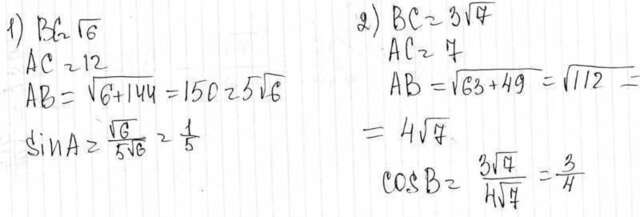 1) BC = √6
AC = 12
AB = √6+144 = 150 = 5√6
sinA = √6/5√6 = 1/5
2) BC = 3√7
AC = 7
AB = √63+49 = √112 =
= 4√7
cosB = 3√7/4√7 = 3/4